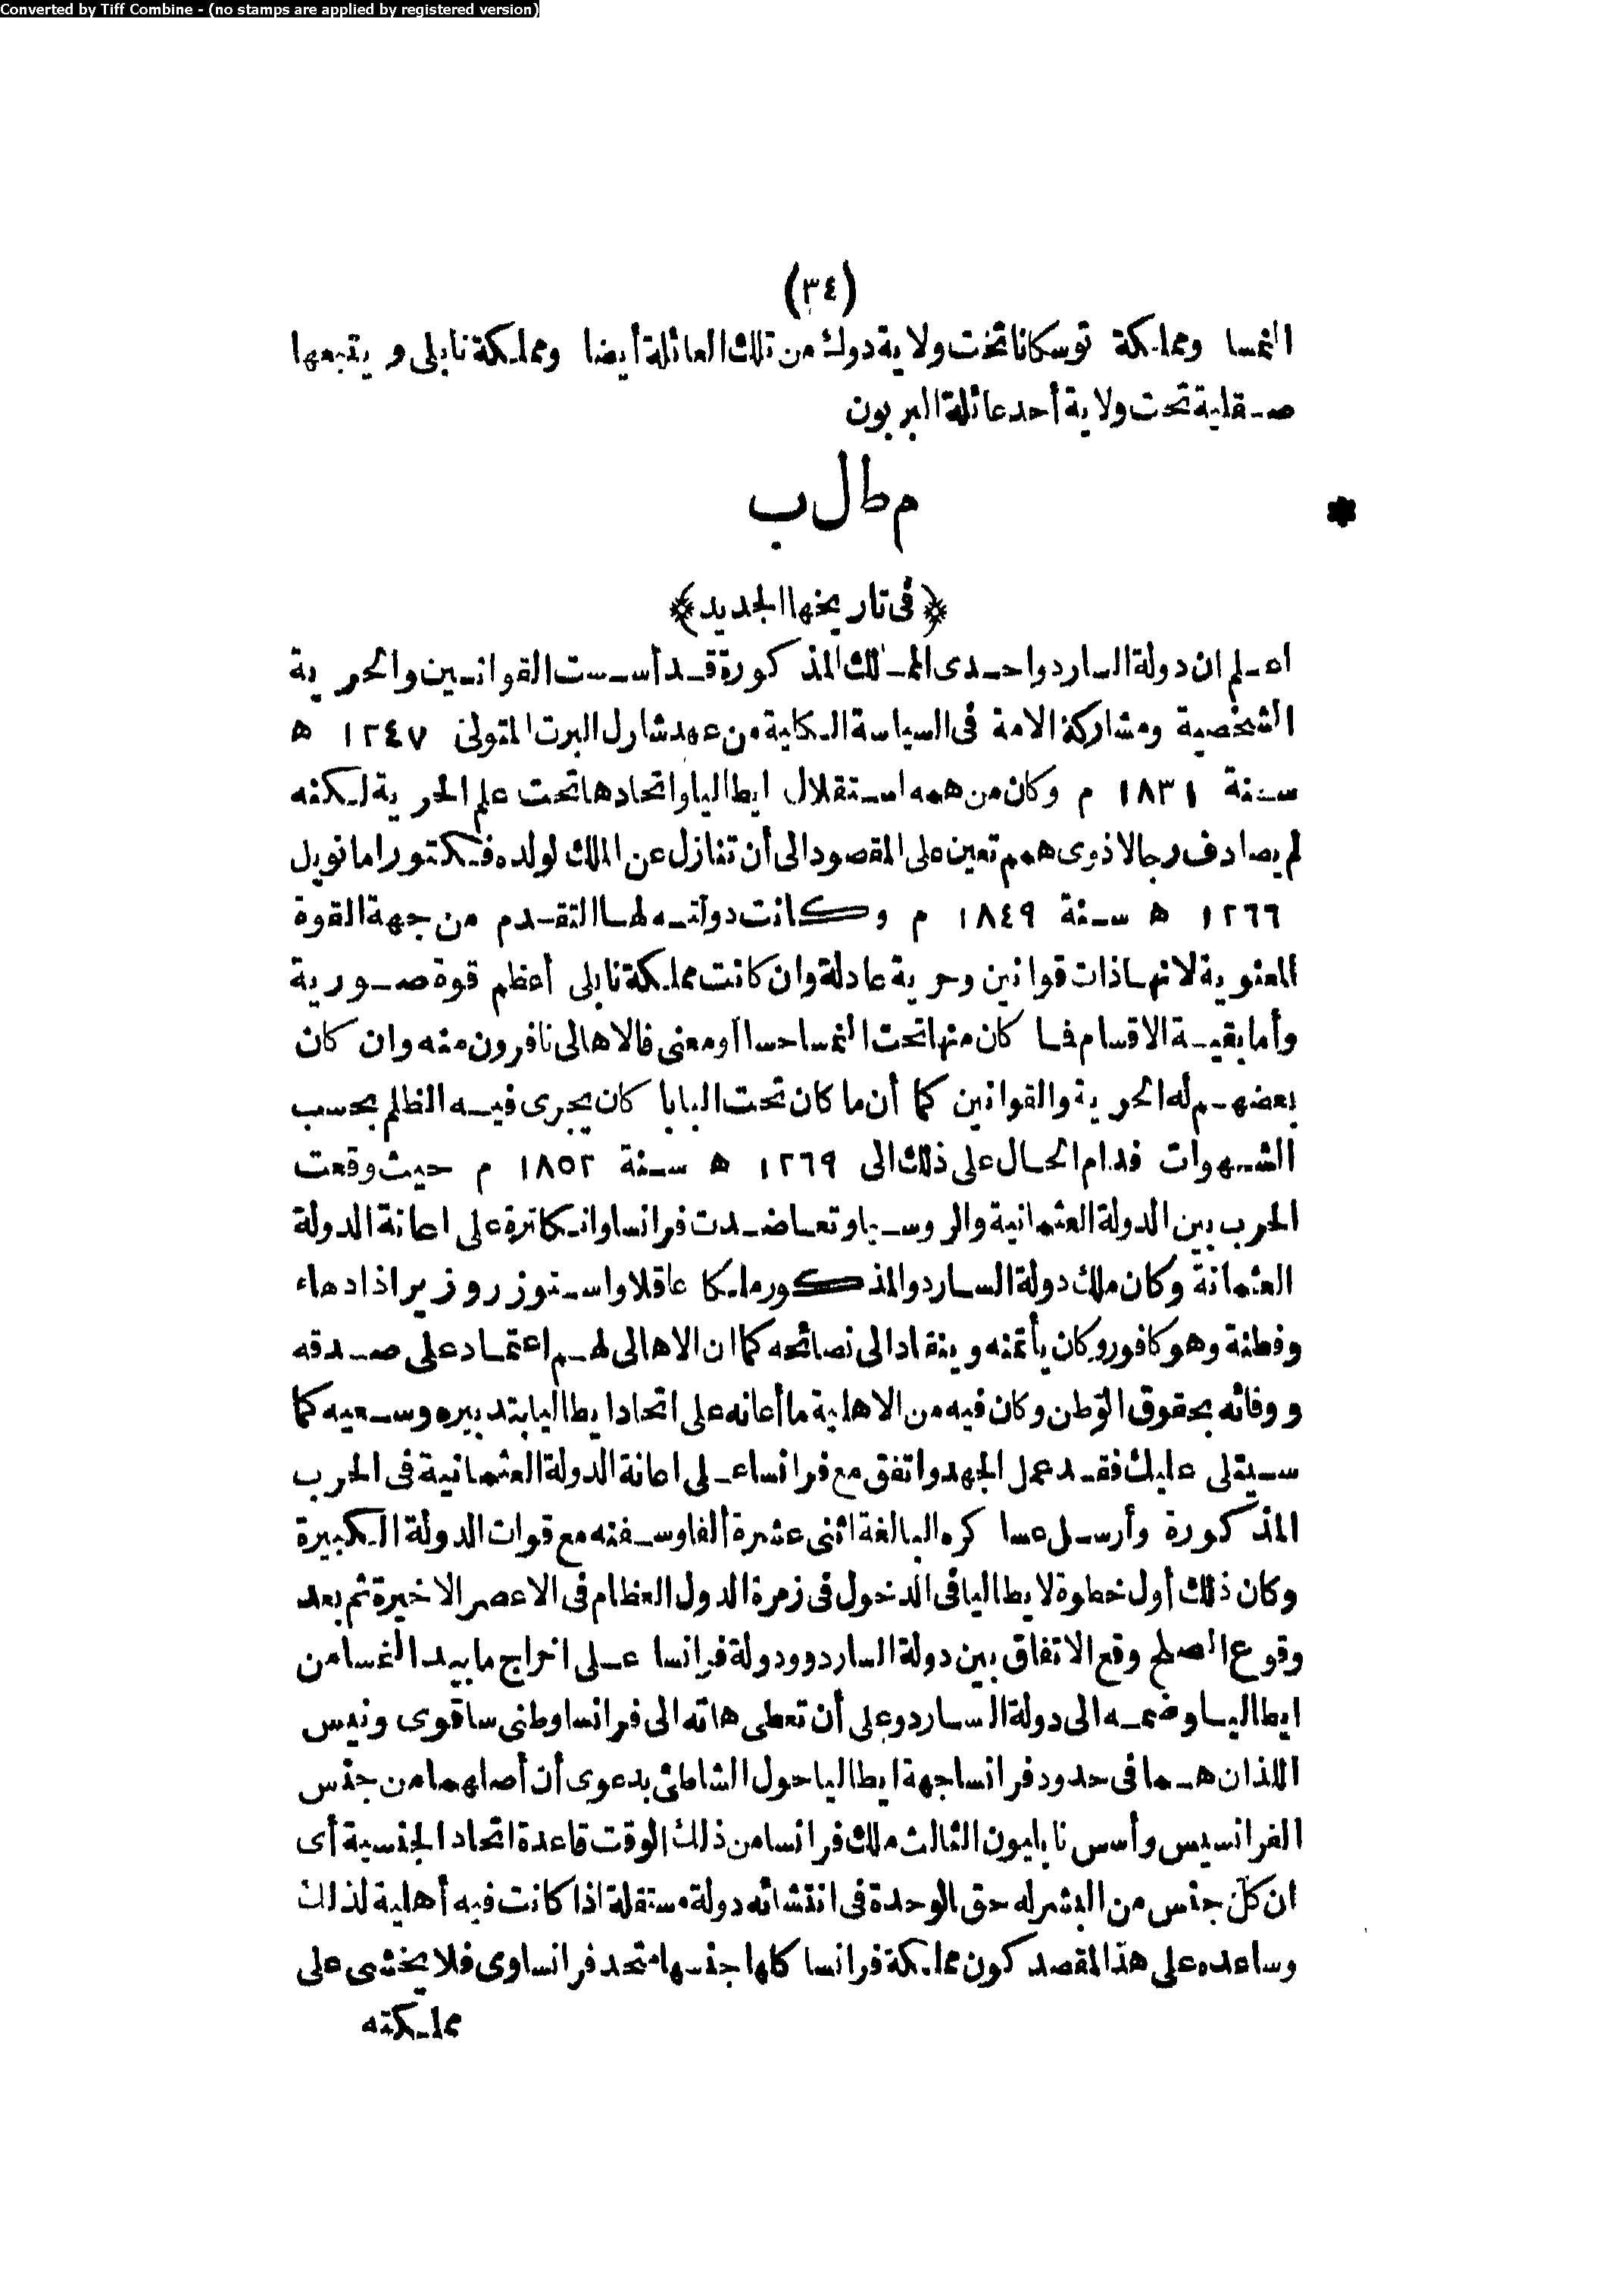 Converted by Tiff Combine - (no stamps are applied by registered version)
(٣٤)
النمسا ومملكة توسكانا تحت ولاية دوك من تلك العائلة أيضا ومملكة نابلى ويتبعها
صقلية تحت ولاية أحد عائلة البربون
مطالب
*
﴿فى تاريخها الجديد﴾
اعلم ان دولة الساردو احدى الممالك المذكورة قد أسست القوانين والحرية
الشخصية ومشاركة الامة فى السياسة الكلية من عهد شارل البرت المتولى ١٢٤٧ ه
سنة ١٨٣١ م وكان من همه استقلال ايطاليا واتحادها تحت علم الحرية لكنه
لم يصادف رجالا ذوى همم تعين على المقصود الى أن تنازل عن الملك لولده فيكتور امانويل
١٢٦٦ ه سنة ١٨٤٩ م وكانت دولته لها التقدم من جهة القوة
المعنوية لانها ذات قوانين وحرية عادلة وان كانت مملكة نابلى أعظم قوة صورية
وأما بقية الاقسام فما كان منها تحت النمسا حسا أو معنى فالاهالى نافرون منه وان كان
بعضهم له الحرية والقوانين كما أن ما كان تحت البابا كان يجرى فيه الظلم بحسب
الشهوات فدام الحال على ذلك الى ١٢٦٩ ه سنة ١٨٥٢ م حيث وقعت
الحرب بين الدولة العثمانية والروسيا وتعاضدت فرانسا وانكلترة على اعانة الدولة
العثمانة وكان ملك دولة الساردو المذكور ملكا عاقلا واستوزر وزيرا ذا دهاء
وفطنة وهو كافور وكان يأتمنه وينقاد الى نصائحه كما ان الاهالى لهم اعتماد على صدقه
ووفائه بحقوق الوطن وكان فيه من الاهلية ما أعانه على اتحاد ايطاليا بتدبيره وسعيه كما
سيتلى عليك فقد عمل الجهد واتفق مع فرانسا على اعانة الدولة العثمانية فى الحرب
المذكورة وأرسل عساكره البالغة اثنى عشرة ألفا وسفنه مع قوات الدولة الكبيرة
وكان ذلك أول خطوة لايطاليا فى الدخول فى زمرة الدول العظام فى الاعصر الاخيرة ثم بعد
وقوع الصلح وقع الاتفاق بين دولة الساردو ودولة فرانسا على اخراج ما بيد النمسا من
ايطاليا وضمه الى دولة الساردو على أن تعطى هاته الى فرانسا وطنى ساقوى ونيس
اللذان هما فى حدود فرانسا جهة ايطاليا حول الشاطئ بدعوى أن أصلهما من جنس
الفرانسيس وأسس نابليون الثالث ملك فرانسا من ذلك الوقت قاعدة اتحاد الجنسية أى
ان كل جنس من البشر له حق الوحدة فى انتشائه دولة مستقلة اذا كانت فيه أهلية لذلك
وساعده على هذا المقصد كون مملكة فرانسا كلها جنسها متحد فرانساوى فلا يخشى على
مملكته